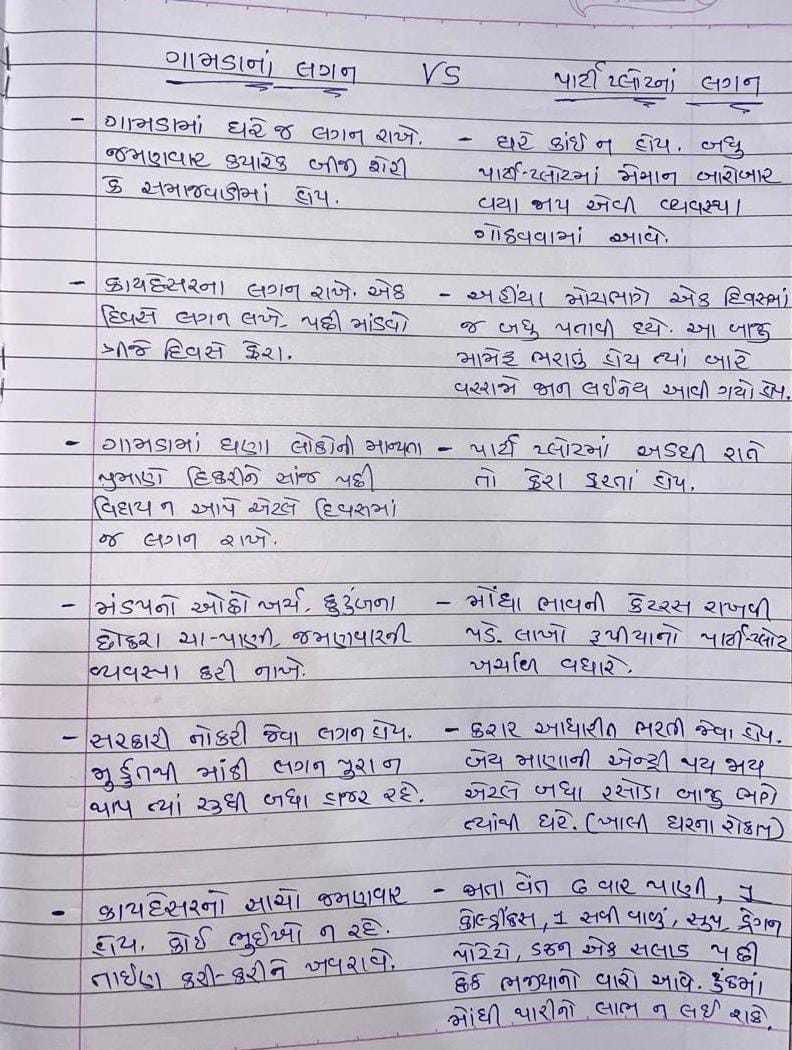 ગામડાનાં લગન VS પાર્ટી પ્લોટનાં લગન
- ગામડામાં ઘરે જ લગન રાખે.
જમણવાર ક્યારેક બીજી શેરી
કે સમાજવાડીમાં હોય.
- ઘરે કાંઈ ન હોય. બધુ
પાર્ટી-પ્લોટમાં મેમાન બારોબાર
વયા જાય એવી વ્યવસ્થા
ગોઠવવામાં આવે.
- કાયદેસરના લગન રાખે. એક
દિવસે લગન લખે, પછી માંડવો
ત્રીજે દિવસે ફેરા.
- અહીંયા મોટાભાગે એક દિવસમાં
જ બધુ પતાવી દ્યે. આ બાજુ
મામેરૂ ભરાતું હોય ત્યાં બારે
વરરાજો જાન લઈનેય આવી ગયો હોય.
- ગામડામાં ઘણા લોકોની માન્યતા
પ્રમાણે દિકરીને સાંજ પછી
વિદાય ન આપે એટલે દિવસમાં
જ લગન રાખે.
- પાર્ટી પ્લોટમાં અડધી રાતે
તો ફેરા ફરતાં હોય.
- મંડપનો ઓછો ખર્ચ. કુટુંબના
છોકરા ચા-પાણી, જમણવારની
વ્યવસ્થા કરી નાખે.
- મોંઘા ભાવની કેટરસ રાખવી
પડે. લાખો રૂપીયાનો પાર્ટી-પ્લોટ
ખર્ચાળ વધારે.
- સરકારી નોકરી જેવા લગન હોય.
મુર્હુતથી માંડી લગન પુરા ન
થાય ત્યાં સુધી બધા હાજર રહે.
- કરાર આધારીત ભરતી જેવા હોય.
જેય માણાની એન્ટ્રી થય જાય
એટલે બધા રસોડા બાજુ ભાગે
ત્યાંથી ઘરે. (ખાલી ઘરના રોકાય)
- કાયદેસરનો સાચો જમણવાર
હોય. કોઈ ભુઈખો ન રહે.
તાઈણ કરી-કરીને ખવરાવે.
- જાતા વેંત 6 વાર પાણી, 1
કોલ્ડ્રીંકસ, 1 સળી વાળું, સુપ, ડ્રેગન
પોટેટો, ડઝન એક સલાડ પછી
છેક ભજીયાનો વારો આવે. ટુંકમાં
મોંઘી થારીનો લાભ ન લઈ શકે.